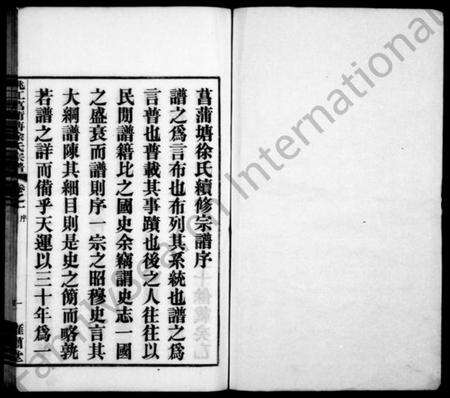 菖蒲塘徐氏續修宗譜序
譜之爲言布也布列其系統也譜之爲
言普也普載其事蹟也後之人往往以
民間譜籍比之國史余竊謂史志一國
之盛衰而譜則序一宗之昭穆史言其
大綱譜陳其細目則是史之簡而略孰
若譜之詳而備乎天運以三十年爲一
姚江菖蒲塘徐氏宗譜 卷之一 序
一
International